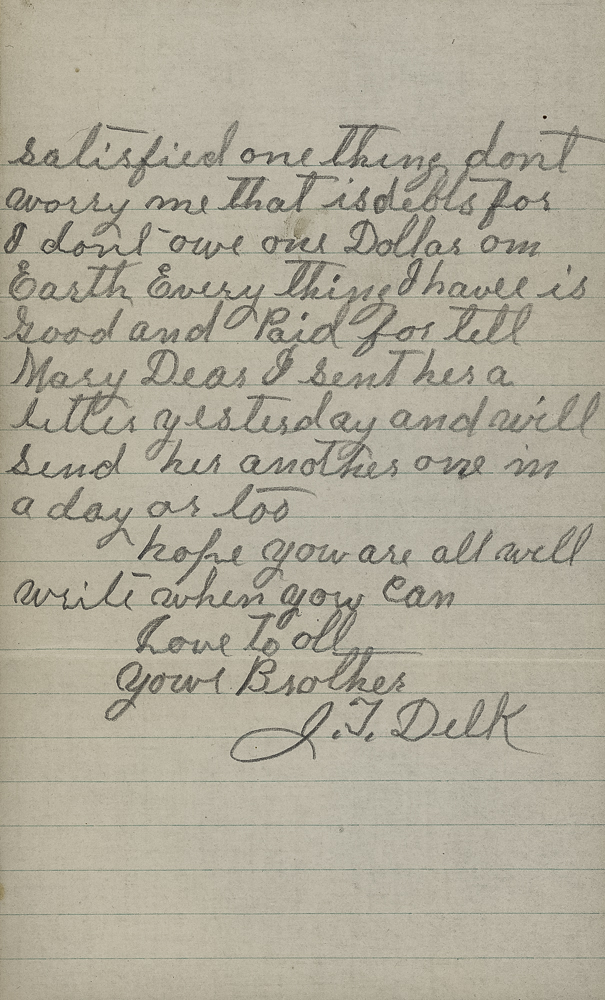 satisfied one thing dont
worry me that is debts for
I dont owe one Dollar om
Earth Every thing I havee is
Good and Paid for tell
Mary Dear I sent her a
letter yesterday and will
send her another one in
a day or too
hope you are all well
write when you can
Love to all
Your Brother
J. T. Delk